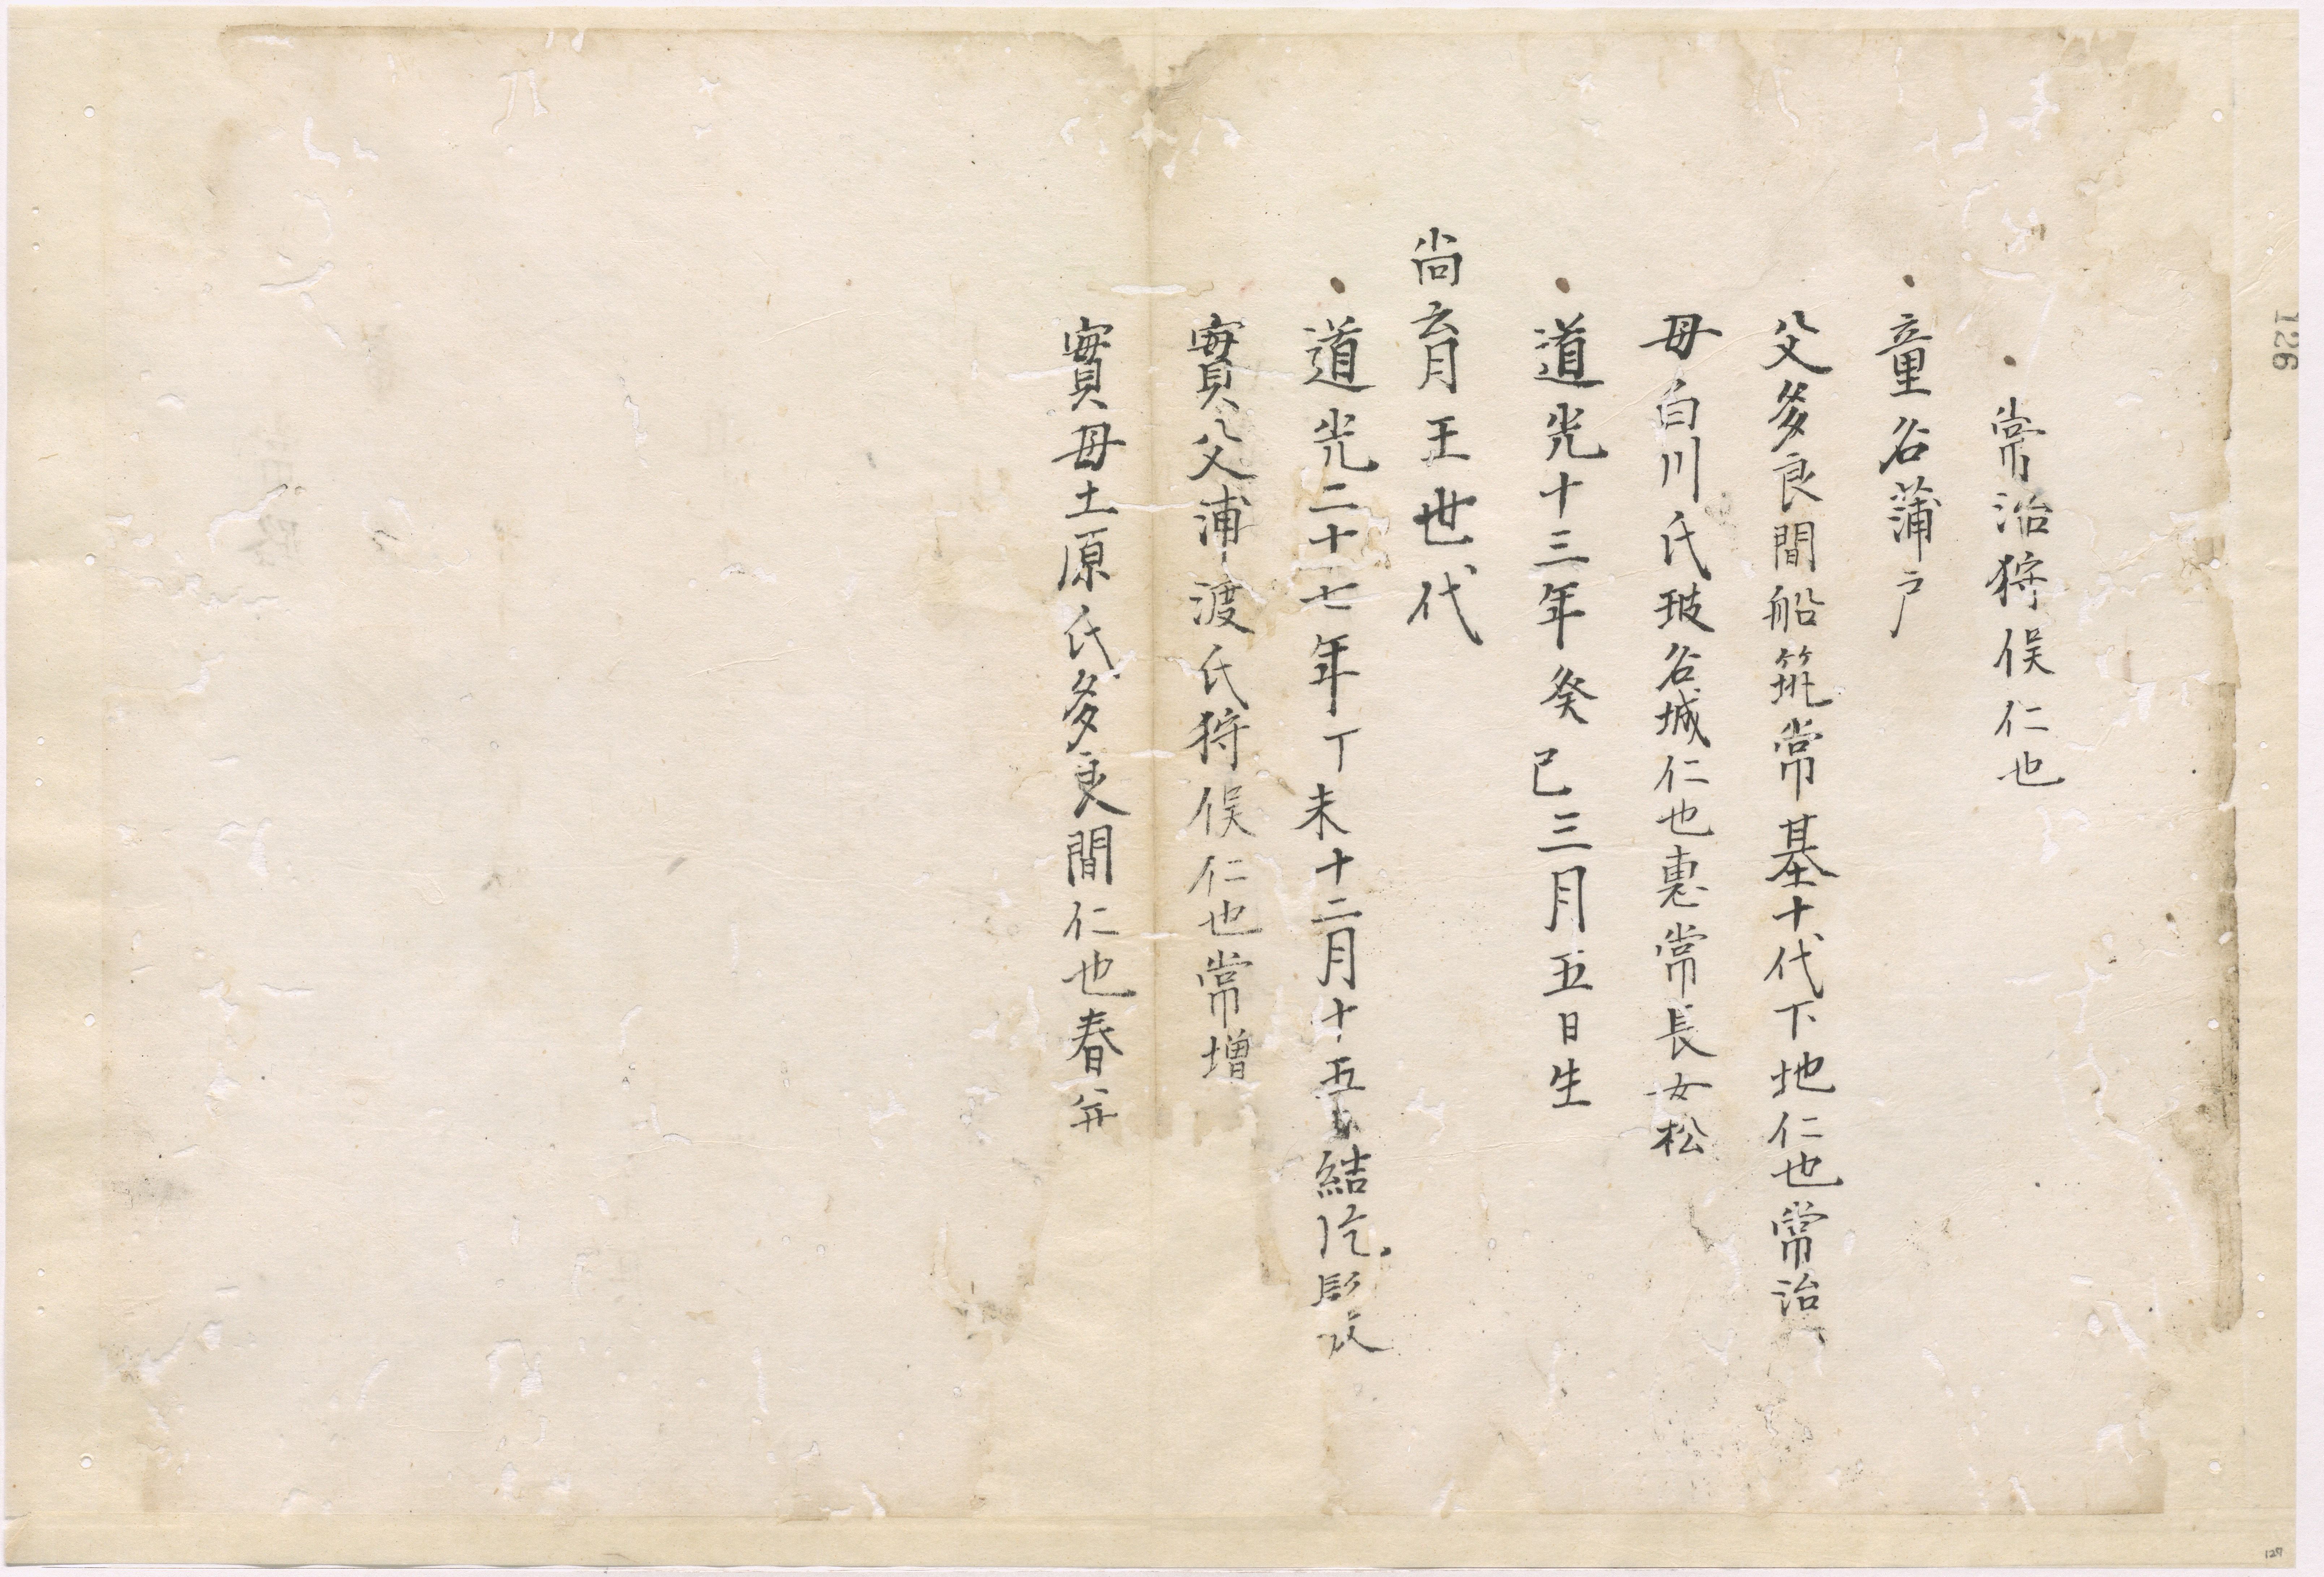 常治狩俣仁也
童名蒲戸
父多良間船筑常基十代下地仁也常治
母白川氏玻名城仁也恵常長女松
道光十三年癸巳三月五日生
尚育王世代
道光二十七年丁未十二月十五 結
實父浦渡氏狩俣仁也常增
實母土原氏多良間仁也春
126
127